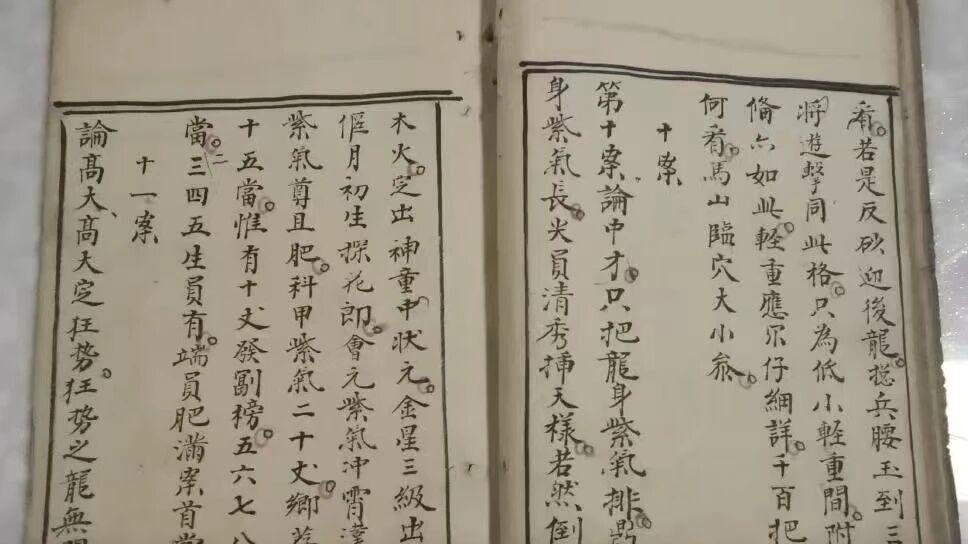 看若是反砂迎後龍摠兵腰玉到三
將遊擊同此格只為低小輕重間附
俻六如此輕重應尔仔細詳千百把
何看馬山臨穴大小叅
十案
第十案論中才只把龍身紫氣排
身紫氣長尖員清秀揷天樣若然倒
木火定出神童中状元金星三級出
偃月初生探花郎會元紫氣冲霄漢
紫氣尊且肥科甲紫氣二十丈鄉
十五當惟有十丈發副榜五六七八
當二三四五生員有端員肥滿案首
十一案
論髙大髙大定狂势狂势之龍無